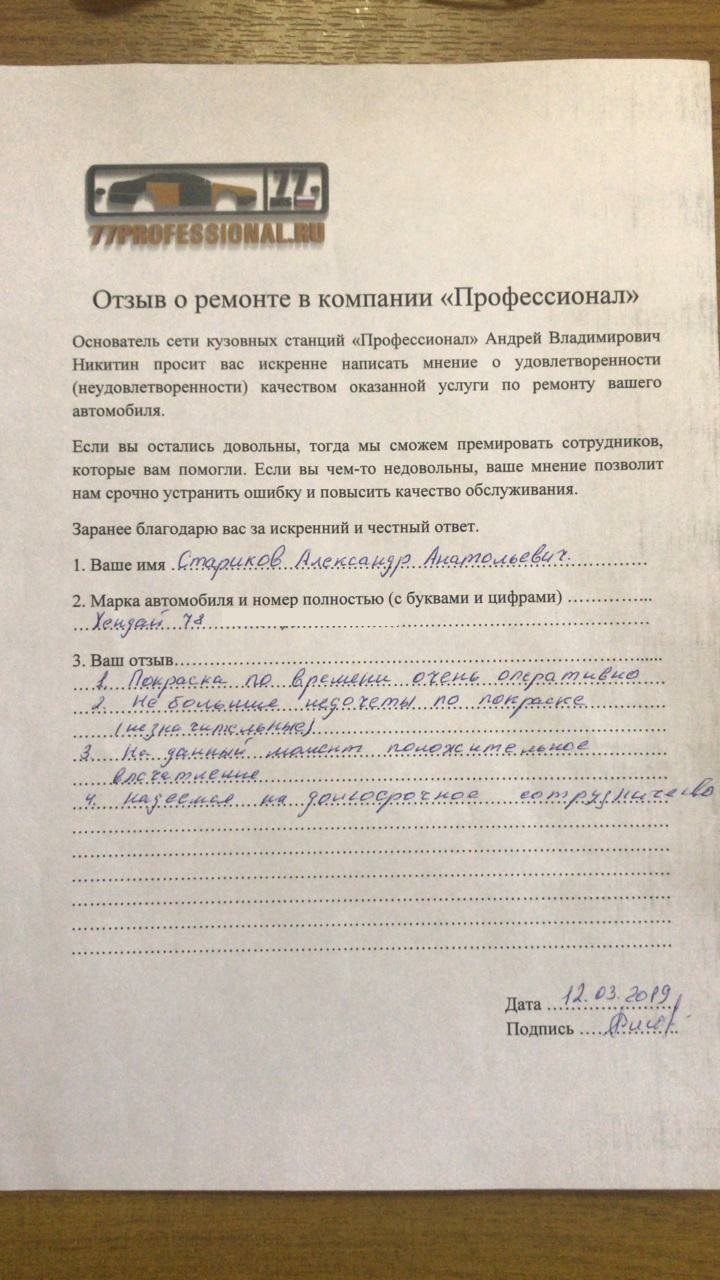 77
77PROFESSIONAL.RU
Отзыв о ремонте в компании «Профессионал»
Основатель сети кузовных станций «Профессионал» Андрей Владимирович
Никитин просит вас искренне написать мнение о удовлетворенности
(неудовлетворенности) качеством оказанной услуги по ремонту вашего
автомобиля.
Если вы остались довольны, тогда мы сможем премировать сотрудников,
которые вам помогли. Если вы чем-то недовольны, ваше мнение позволит
нам срочно устранить ошибку и повысить качество обслуживания.
Заранее благодарю вас за искренний и честный ответ.
1. Ваше имя Стариков Александр Анатольевич.
2. Марка автомобиля и номер полностью (с буквами и цифрами)
Хендай 78
3. Ваш отзыв
1. Покраска по времени очень оперативно
2. Не большие недочеты по покраске
(незначительные)
3. На данный момент положительное
впечатление
4. Надеемся на долгосрочное сотрудничество
Дата 12.03.2019
Подпись